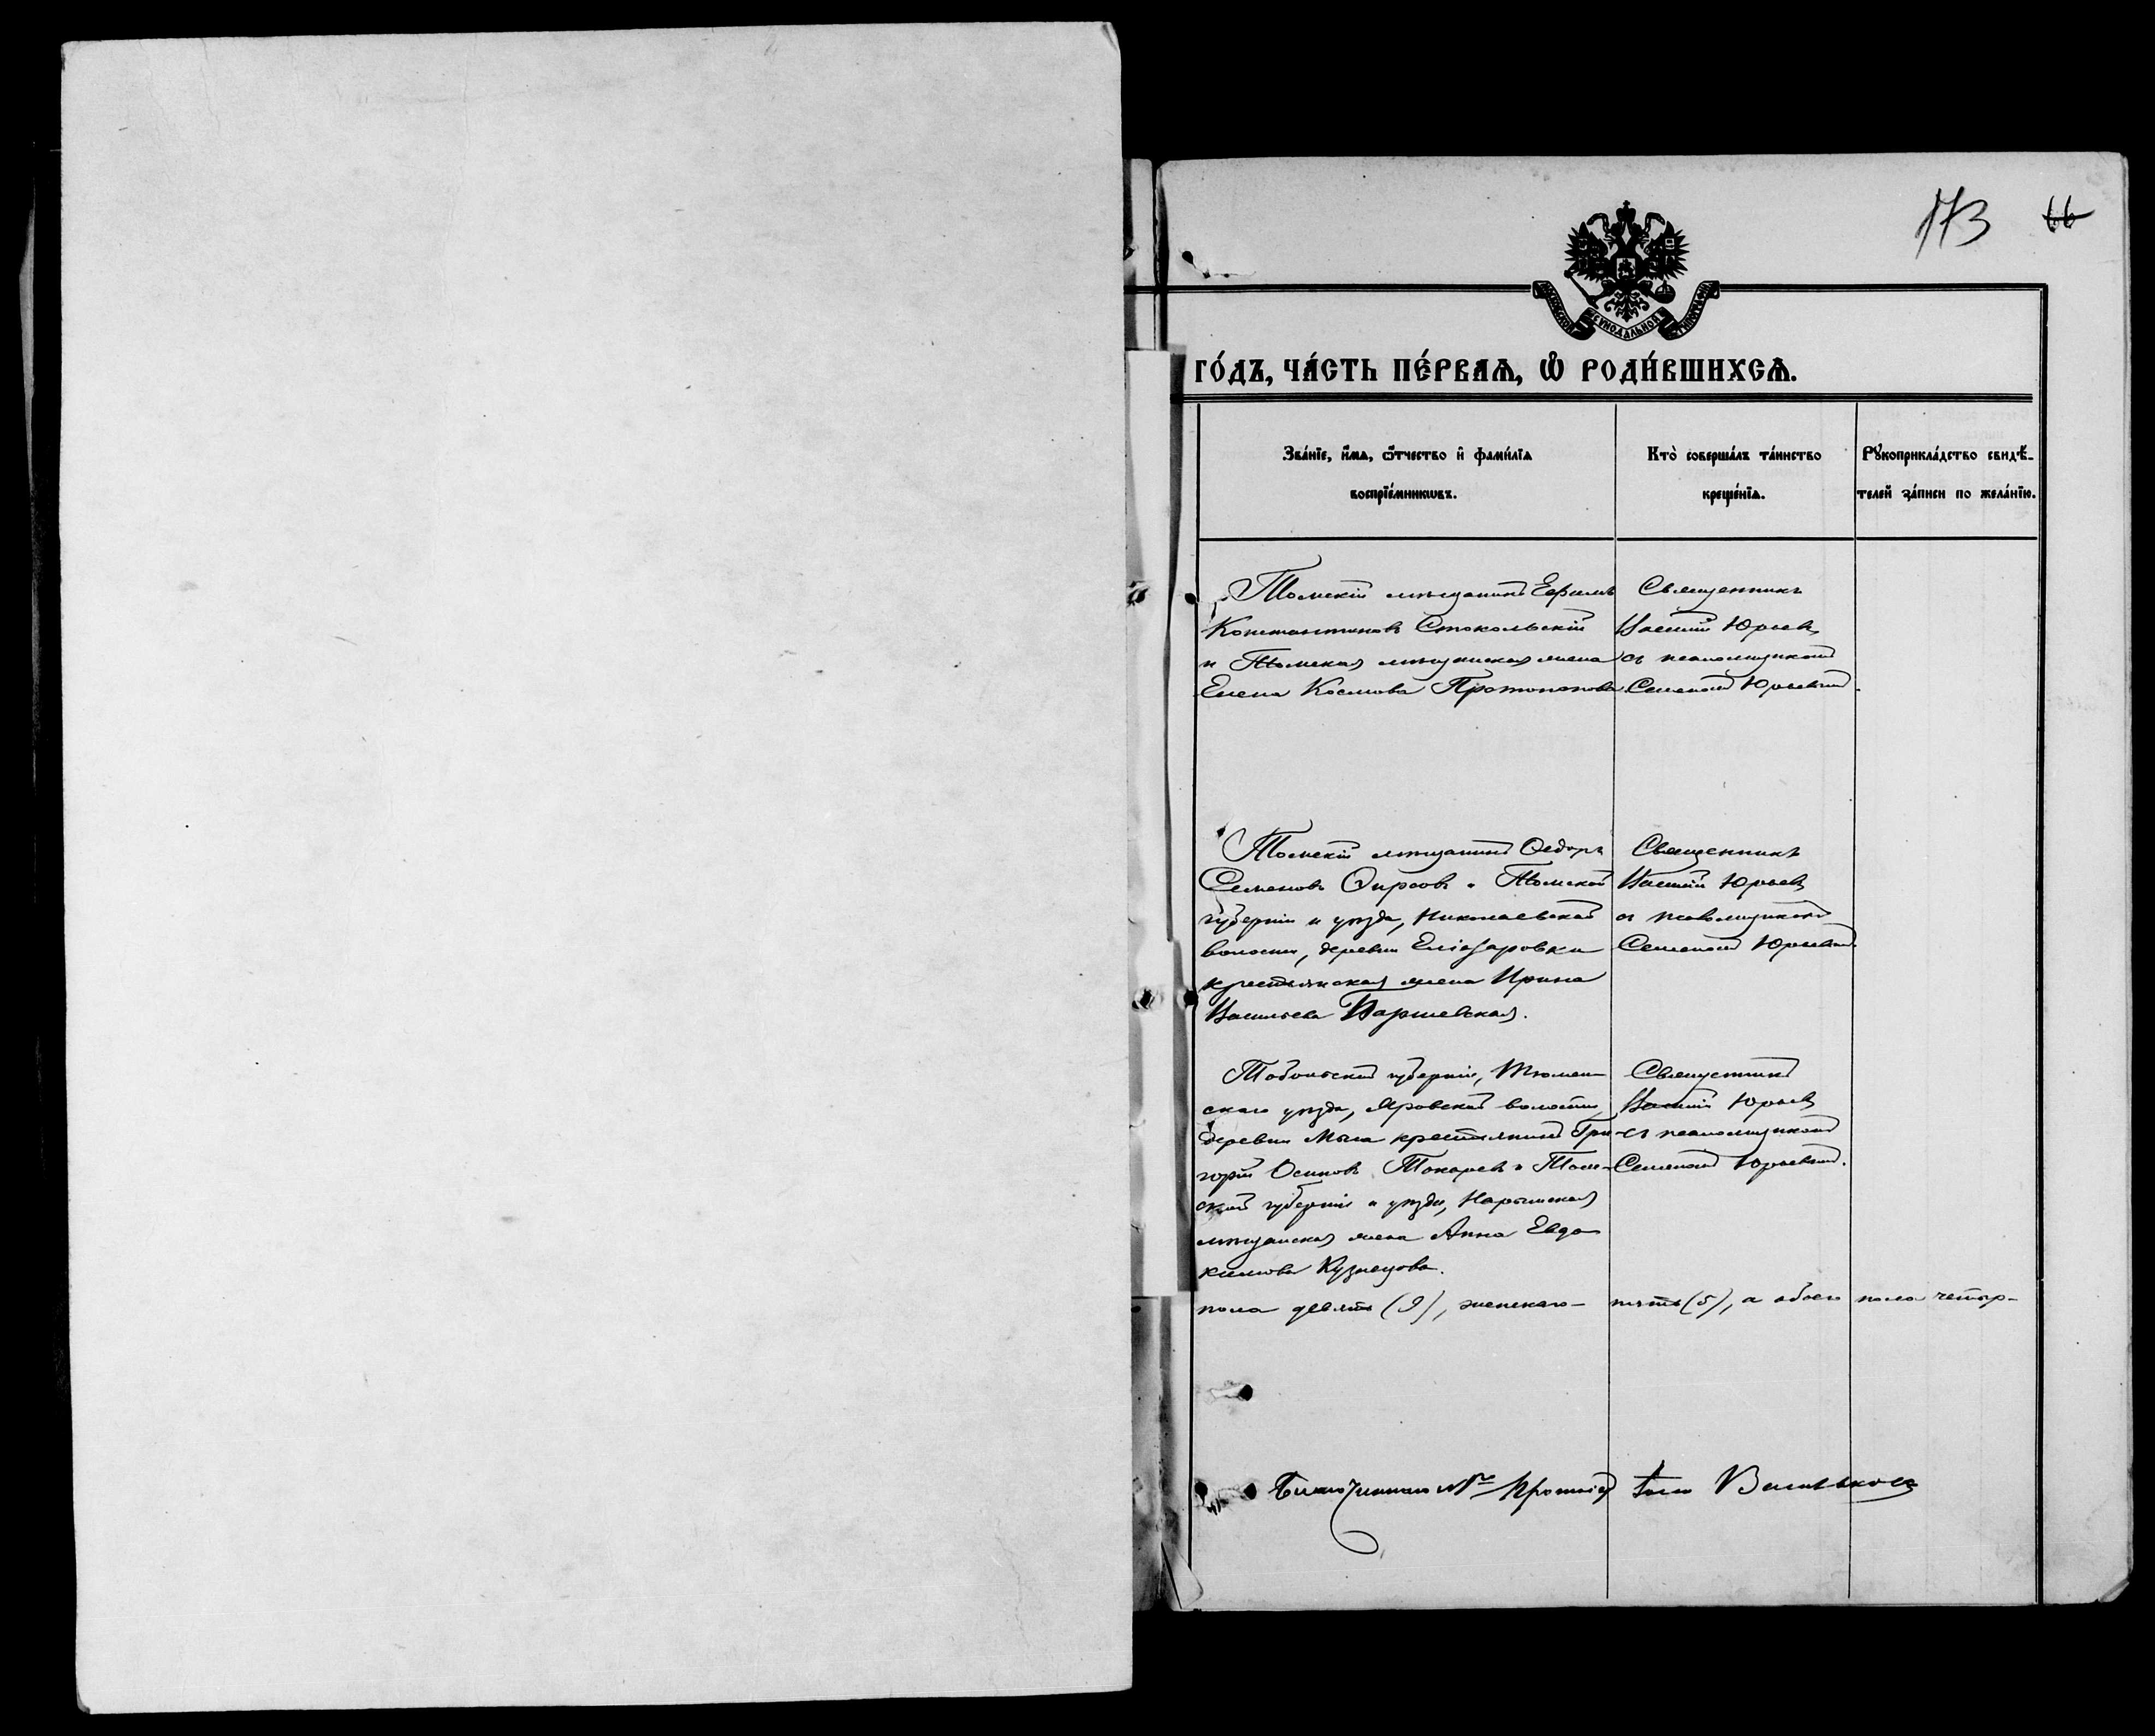 173 66
МОСКОВСКОЙ СѴНОДАЛЬНОЙ ТИПОГРАФІИ
ГО́ДЪ, ЧА́СТЬ ПЕ́РВАѦ, Ѡ҆ РОДИ́ВШИХСѦ.
Зва́нїе, и҆́мѧ, ѻ҆́тчество и҆ фами́лїѧ
воспрїе́мникѡвъ.
Кто̀ соверша́лъ та́инство
креще́нїѧ.
Рꙋкоприкла́дство свидѣ́-
телей за́писи по жела́нїю.
Томскій мѣщанинъ Ефимъ
Константиновъ Стокольскій
и Томская мѣщанская жена
Елена Космова Протопопова.
Священникъ
Василій Юрьевъ
съ псаломщикомъ
Семеномъ Юрьевымъ.
Томскій мѣщанинъ Ѳедоръ
Семеновъ Ѳирсовъ и Томской
губерніи и уѣзда, Николаевской
волости, деревни Еліазаровки
крестьянская жена Ирина
Васильева Варшевская.
Священникъ
Василій Юрьевъ
съ псаломщикомъ
Семеномъ Юрьевымъ.
Тобольской губерніи, Тюмен-
скаго уѣзда, Яровской волости,
деревни Мыса крестьянинъ Гри-
горій Осиповъ Токаревъ и Том-
ской губерніи и уѣзда, Нарымская
мѣщанская жена Анна Евдо-
кимова Кузнецова.
Священникъ
Василій Юрьевъ
съ псаломщикомъ
Семеномъ Юрьевымъ.
пола девять (9), женскаго – пять (5), а обоего пола четыр-
Благочинный Протоіер